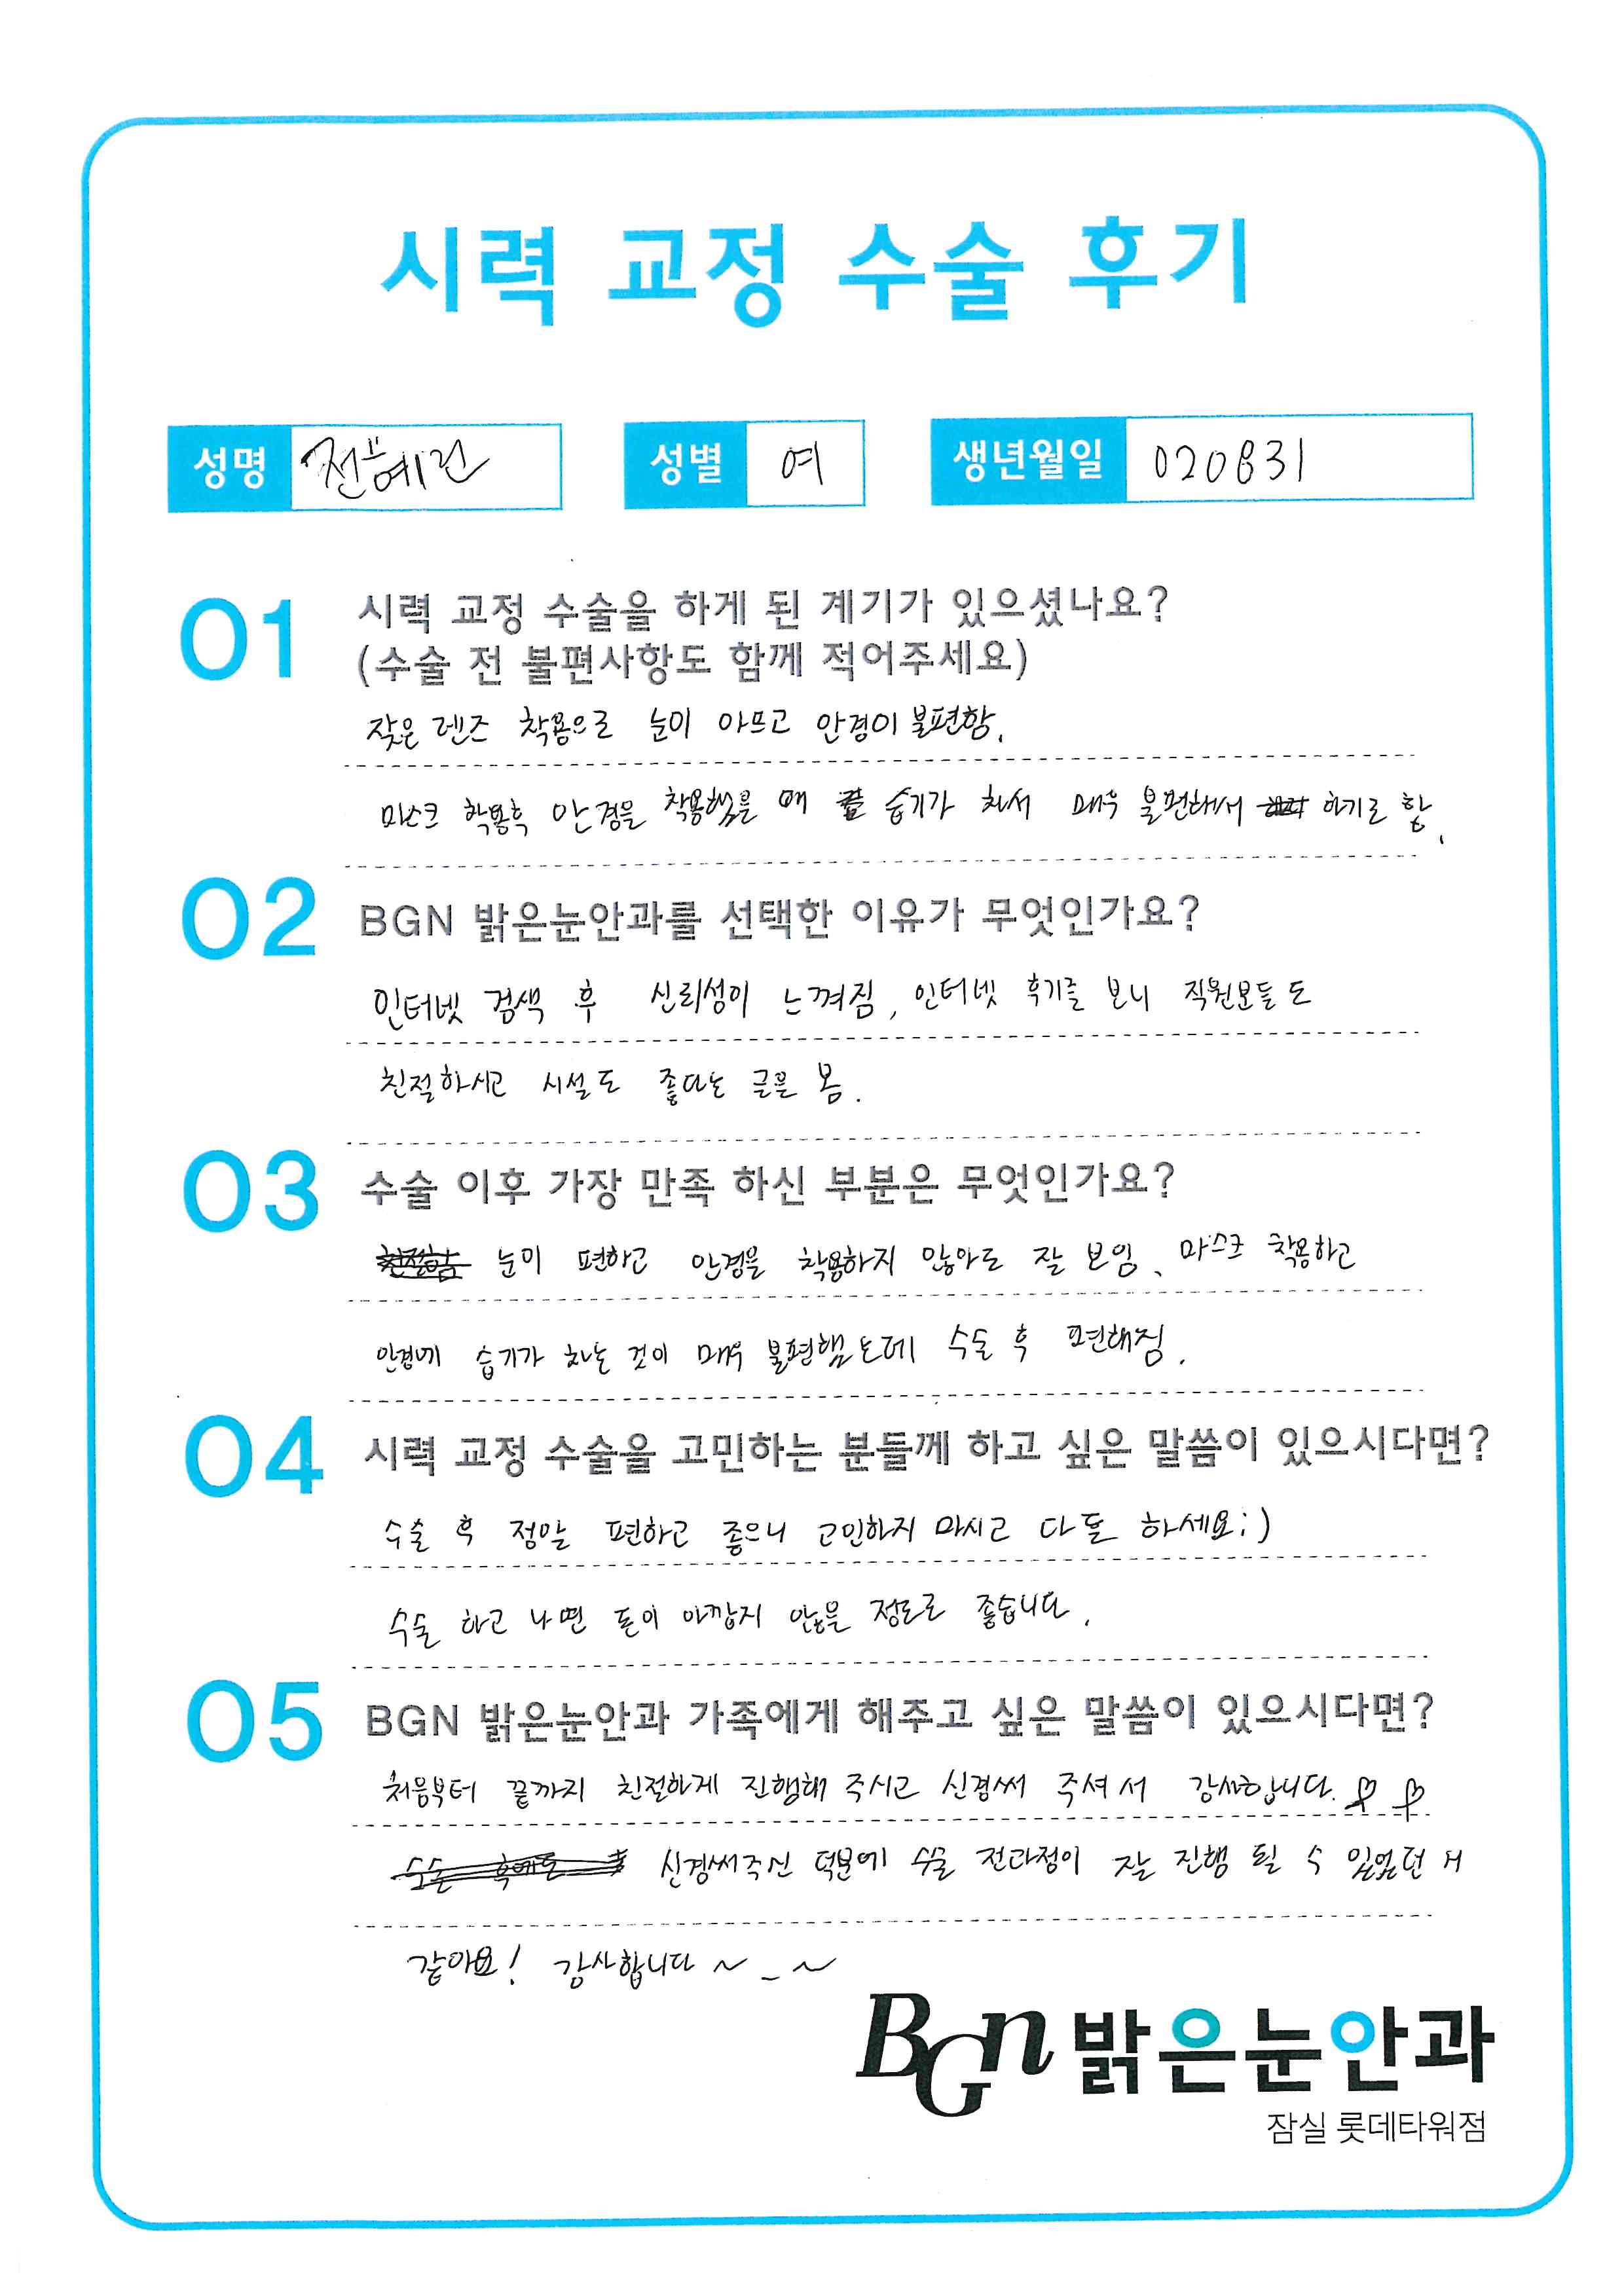 시력 교정 수술 후기
성명 전예린 성별 여 생년월일 020831
01 시력 교정 수술을 하게 된 계기가 있으셨나요?
(수술 전 불편사항도 함께 적어주세요)
잦은 렌즈 착용으로 눈이 아프고 안경이 불편함.
마스크 착용후 안경을 착용했을 때 습기가 차서 매우 불편해서 하기로 함.
02 BGN 밝은눈안과를 선택한 이유가 무엇인가요?
인터넷 검색 후 신뢰성이 느껴짐, 인터넷 후기를 보니 직원분들도
친절하시고 시설도 좋다는 글을 봄.
03 수술 이후 가장 만족 하신 부분은 무엇인가요?
눈이 편하고 안경을 착용하지 않아도 잘 보임. 마스크 착용하고
안경에 습기가 차는 것이 매우 불편했는데 수술 후 편해짐.
04 시력 교정 수술을 고민하는 분들께 하고 싶은 말씀이 있으시다면?
수술 후 정말 편하고 좋으니 고민하지 마시고 다들 하세요:)
수술 하고 나면 돈이 아깝지 않을 정도로 좋습니다.
05 BGN 밝은눈안과 가족에게 해주고 싶은 말씀이 있으시다면?
처음부터 끝까지 친절하게 진행해 주시고 신경써 주셔서 감사합니다. ♡ ♡
신경써주신 덕분에 수술 전과정이 잘 진행 될 수 있었던 거
같아요! 감사합니다 ~_~
BGN 밝은눈안과
잠실 롯데타워점